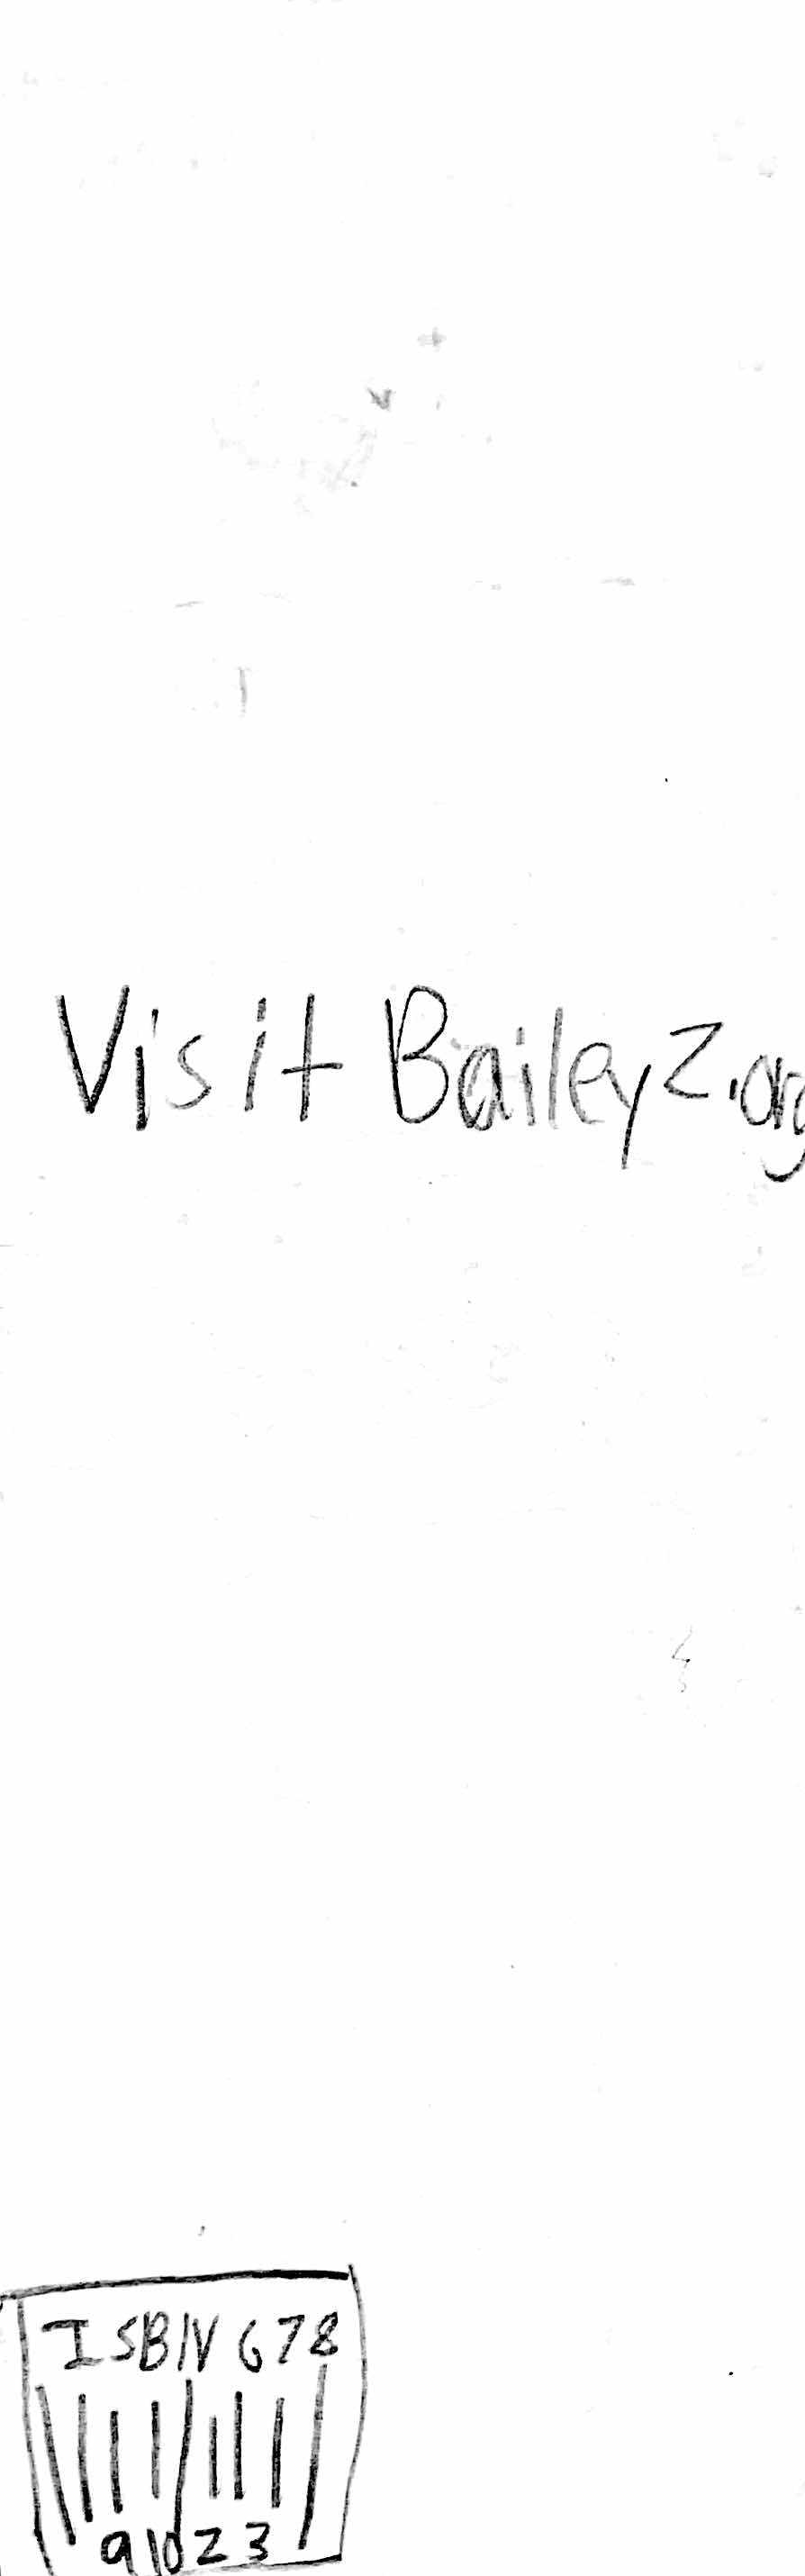 Visit Baileyz.org
ISBN 678
91023